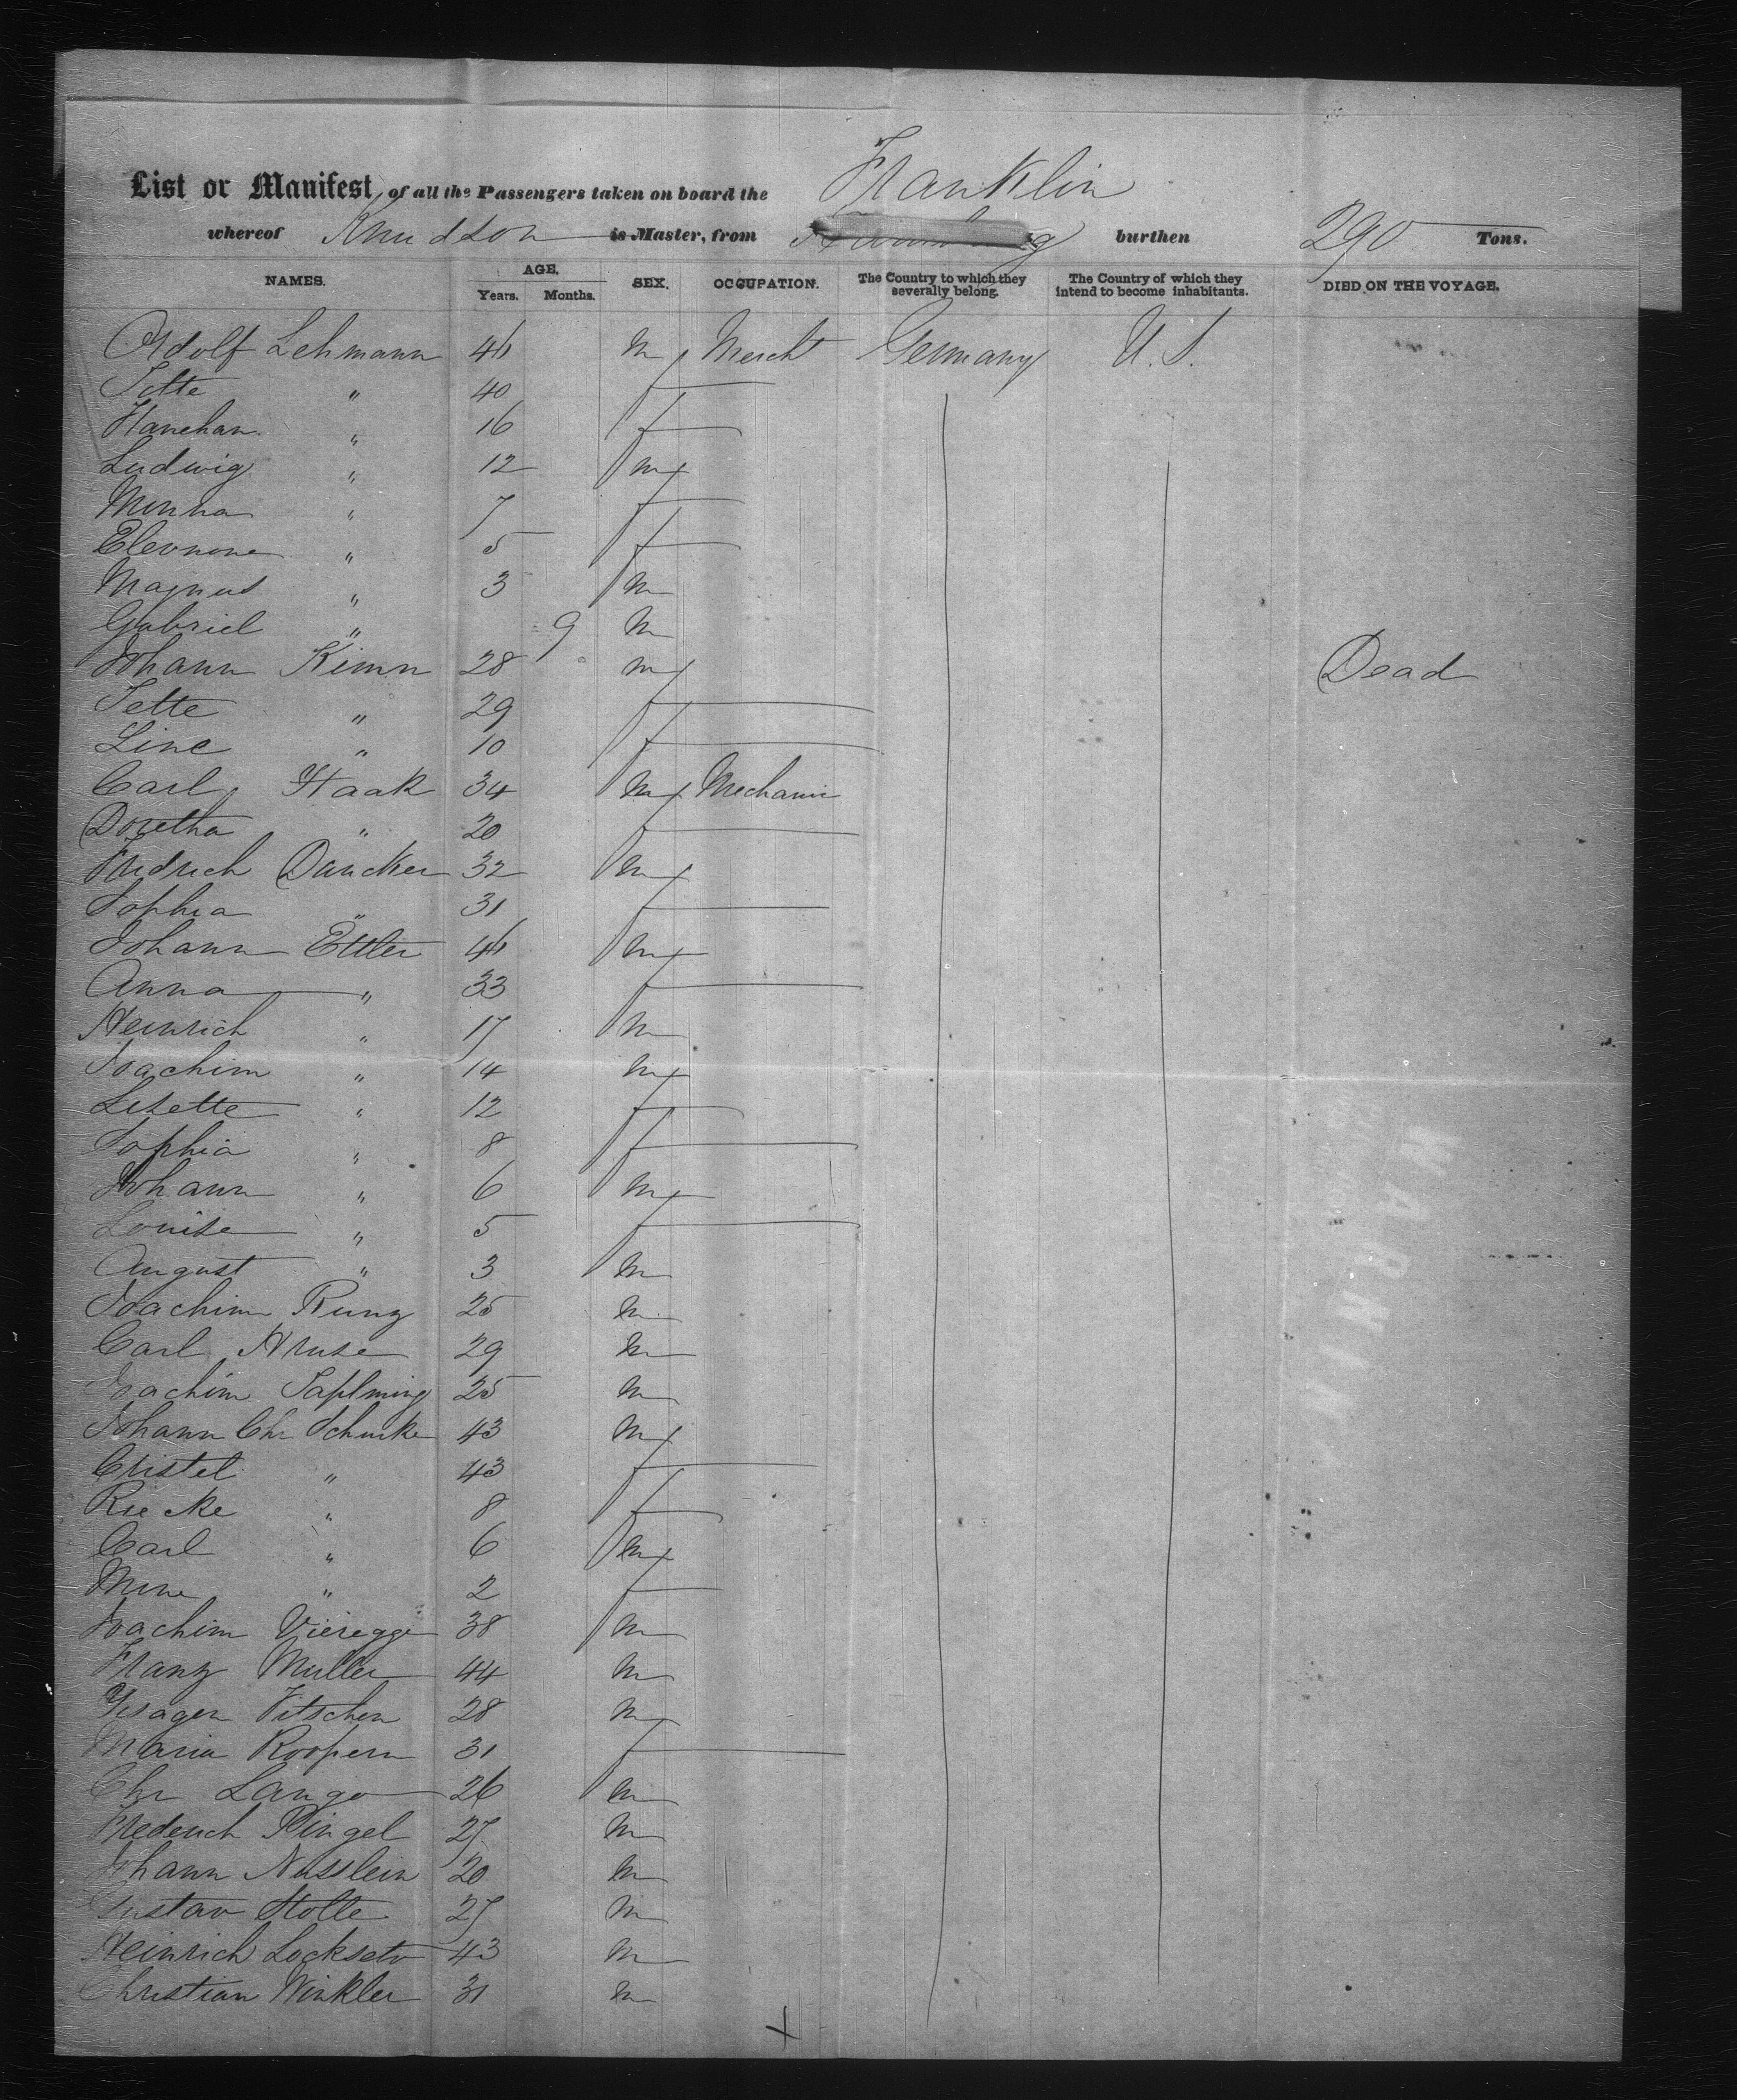 List or Manifest, of all the Passengers taken on board the Franklin
whereof Knudson is Master, from burthen 290 Tons.
NAMES. AGE, Years. Months. SEX. OCCUPATION. The Country to which they severally belong. The Country of which they intend to become inhabitants. DIED ON THE VOYAGE.
Adolf Lehmann 41 m Mercht Germany U.S.
Jette " 40 f
Hanchan " 16 f
Ludwig " 12 m
Minna " 7 f
Eleonore " 5 f
Magnus " 3 m
Gabriel " 9 m
Johann Kimn 28 m Dead
Jette " 29 f
Line " 10 f
Carl Haak 34 m Mechanic
Doretha " 20 f
Fridrich Dancker 32 m
Sophia " 31 f
Johann Ettler 41 m
Anna " 33 f
Heinrich " 17 m
Joachim " 14 m
Lisette " 12 f
Sophia " 8 f
Johann " 6 m
Louise " 5 f
August " 3 m
Joachim Kung 25 m
Carl Kruse 29 m
Joachim 25 m
Johann Chr Schunke 43 m
Cristel " 43 f
Riecke " 8 f
Carl " 6 m
Mine " 2 f
Joachim Vieregge 38 m
Franz Muller 44 m
Vitschen 28 m
Maria Roopern 31 f
Chr Lange 26 m
Frederich Ringel 27 m
Johann Nusslein 20 m
Gustav Stolte 27 m
Heinrich 43 m
Christian Winkler 31 m